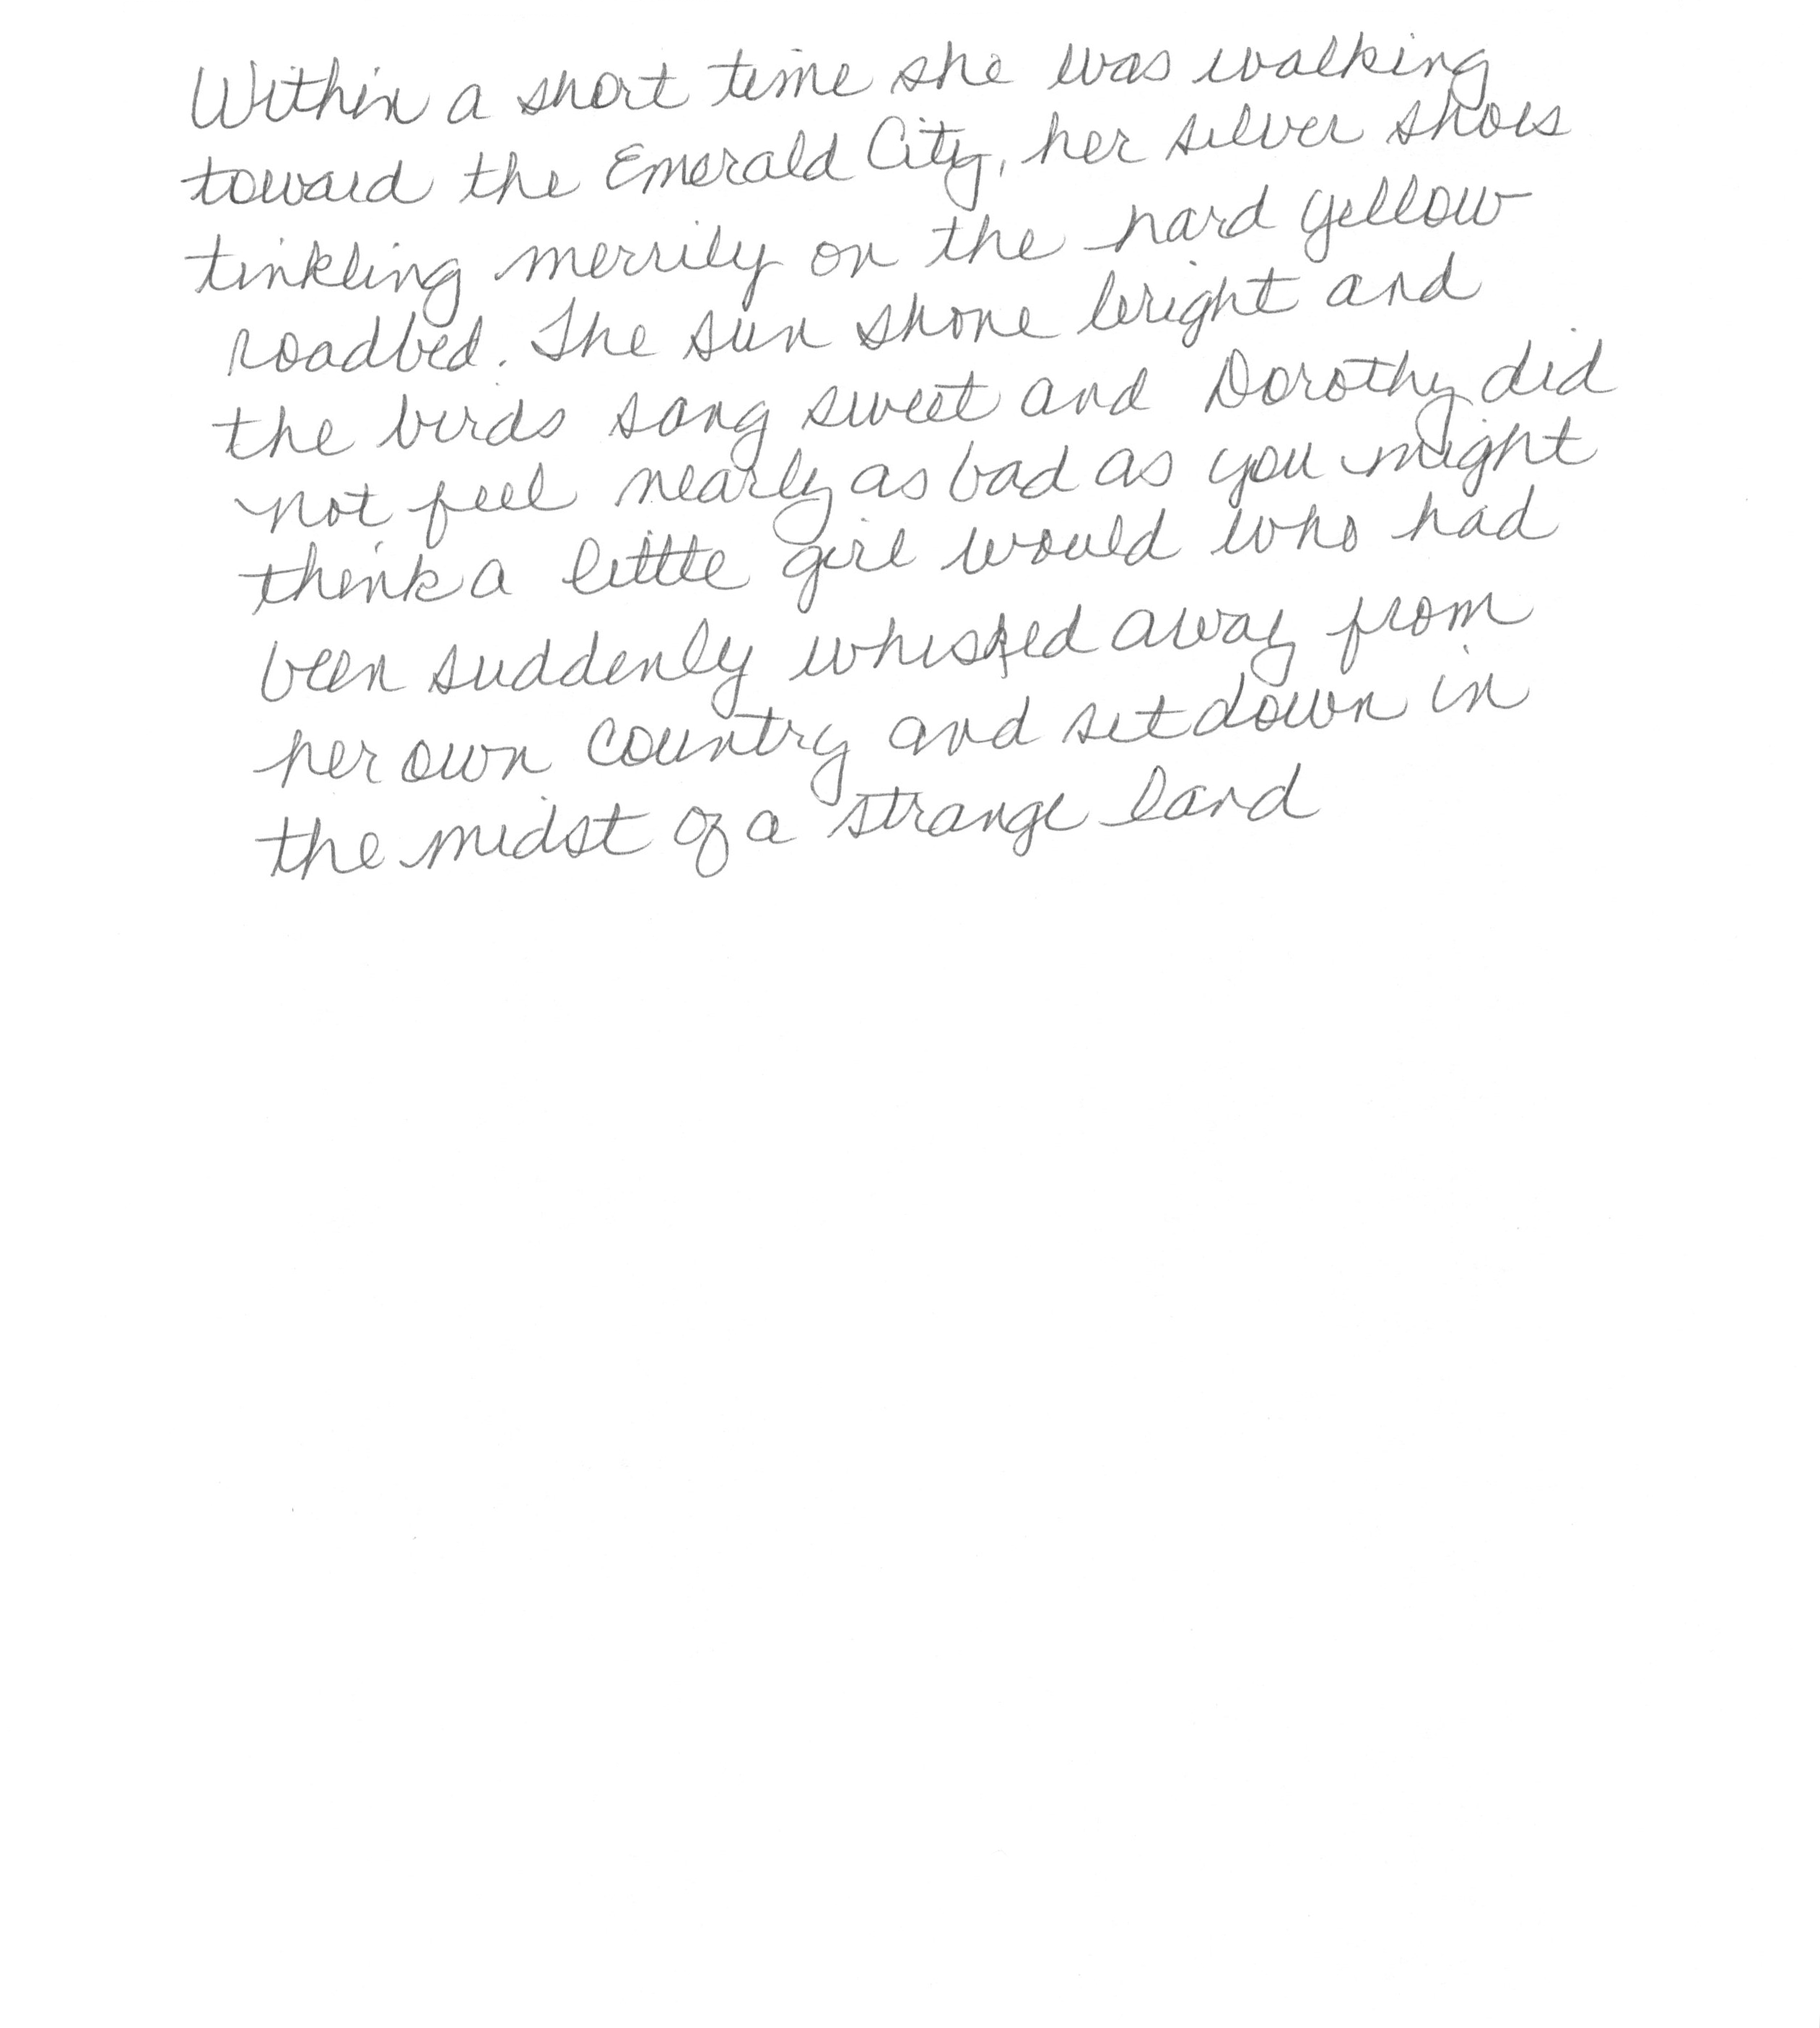 Within a short time she was walking
toward the Emerald City, her silver shoes
tinkling merrily on the hard yellow
roadbed. The sun shone bright and
the birds sang sweet and Dorothy did
not feel nearly as bad as you might
think a little girl would who had
been suddenly whisked away from
her own country and set down in
the midst of a strange land